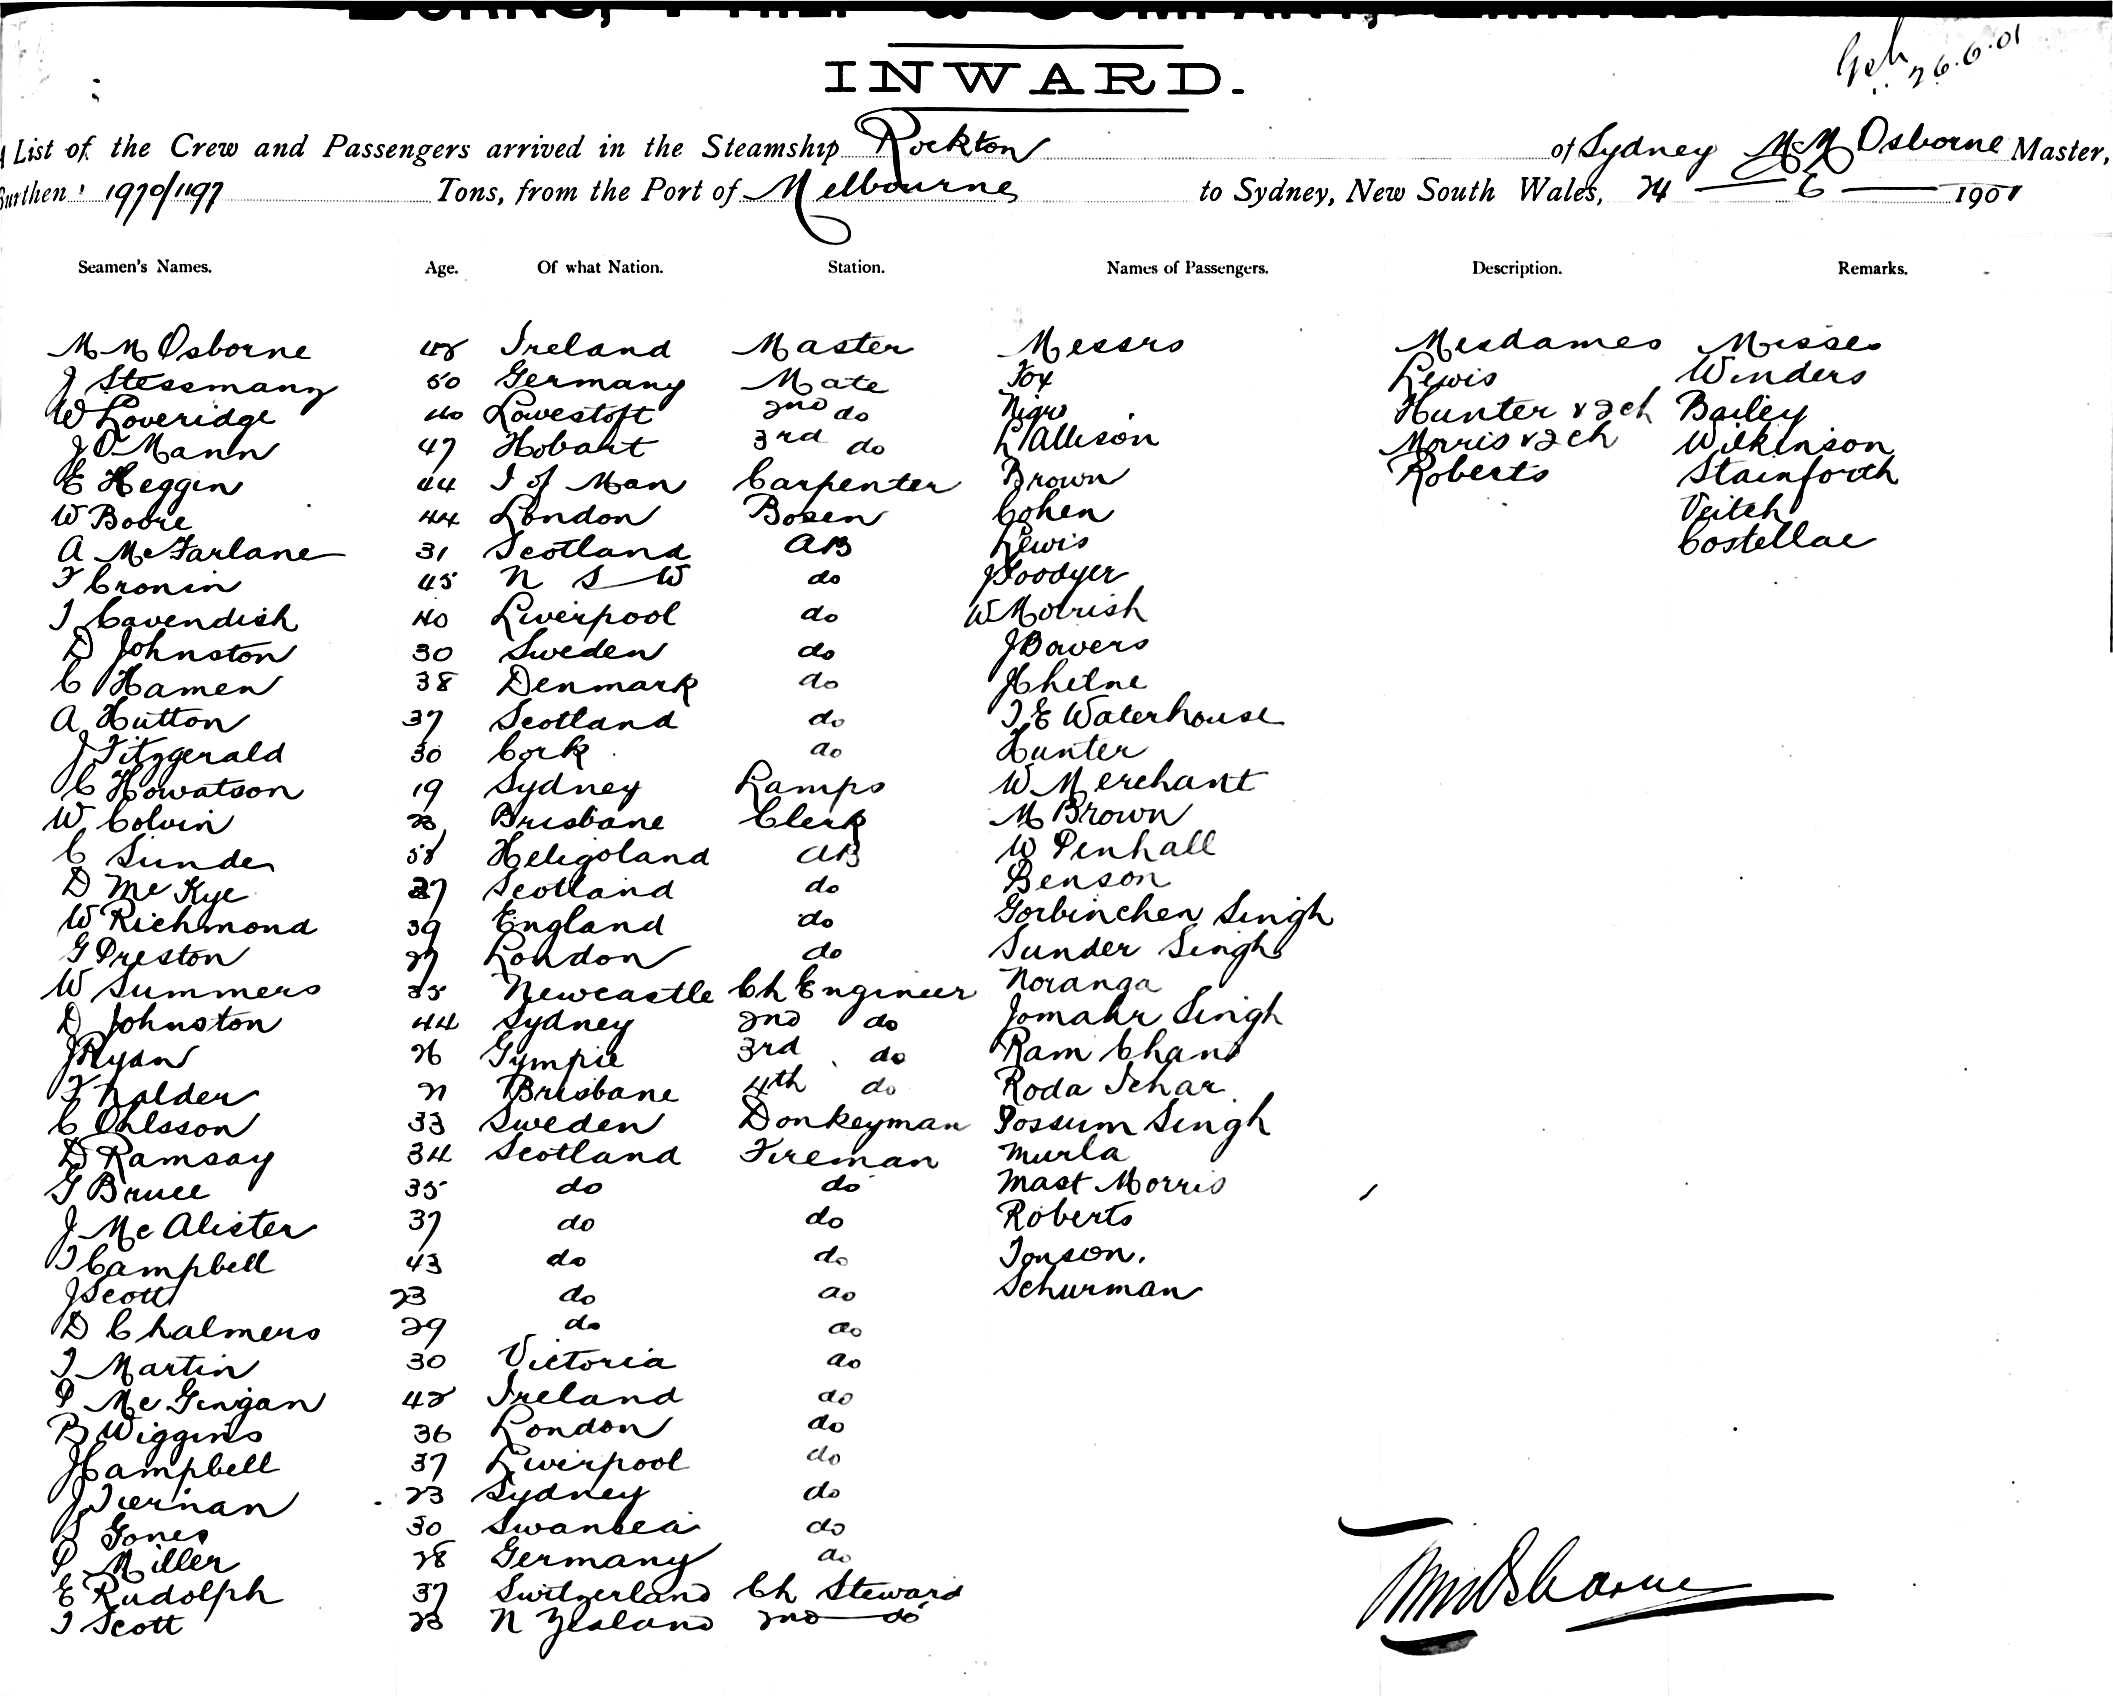 BURNS, PHILP & COMPANY, LIMITED.
26.6.01
INWARD.
List of the Crew and Passengers arrived in the Steamship Rockton of Sydney M M Osborne Master,
Burthen 1970/1197 Tons, from the Port of Melbourne to Sydney, New South Wales, 24 6 1901
Seamen's Names. Age. Of what Nation. Station. Names of Passengers. Description. Remarks.
M M Osborne 48 Ireland Master Messrs Mesdames Misses
J Stessmann 50 Germany Mate Fox Lewis Winders
W Loveridge 40 Lowestoft 2nd do Nigro Hunter & 2 ch Bailey
J O Mann 47 Hobart 3rd do L Allison Morris & 2 ch Wilkinson
E Heggin 44 I of Man Carpenter Brown Roberts Stainforth
W Boore 44 London Bosen Cohen Veitch
A McFarlane 31 Scotland AB Lewis Costellae
F Cronin 45 N S W do J Goodyer
J Cavendish 40 Liverpool do W Morrish
D Johnston 30 Sweden do J Bowers
C Hamen 38 Denmark do
A Hutton 37 Scotland do T E Waterhouse
J Fitzgerald 30 Cork do Hunter
C Howatson 19 Sydney Lamps W Merchant
W Colvin 23 Brisbane Clerk M Brown
C Sunde 58 Heligoland AB W Penhall
D McKye 27 Scotland do Benson
W Richmond 39 England do Gorbinchen Singh
G Preston 27 London do Sunder Singh
W Summers 35 Newcastle Ch Engineer Noranga
D Johnston 44 Sydney 2nd do Jomahr Singh
J Ryan 26 Gympie 3rd do Ram Chand
F Nalder 21 Brisbane 4th do Roda Ichar
C Ohlsson 33 Sweden Donkeyman Possum Singh
D Ramsay 34 Scotland Fireman Murla
G Bruce 35 do do Mast Morris
J McAlister 37 do do Roberts
J Campbell 43 do do Tonson.
J Scott 23 do do Schurman
D Chalmers 29 do do
J Martin 30 Victoria do
P McGingan 42 Ireland do
B Wiggins 36 London do
J Campbell 37 Liverpool do
J Tiernan 23 Sydney do
Jones 30 Swansea do
P Miller 28 Germany do
E Rudolph 37 Switzerland Ch Steward
J Scott 23 N Zealand 2nd do
MMOsborne